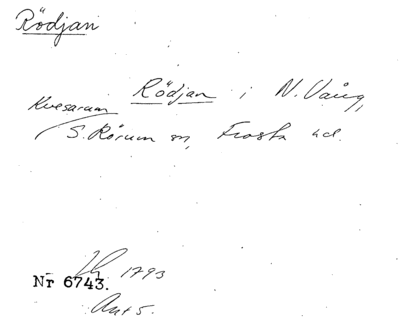 Rödjan
Rödjan i N. Vång,
Kvesarum
S. Rörum sn, Frosta hd.
1793
Nr 6743.
Ant 5.